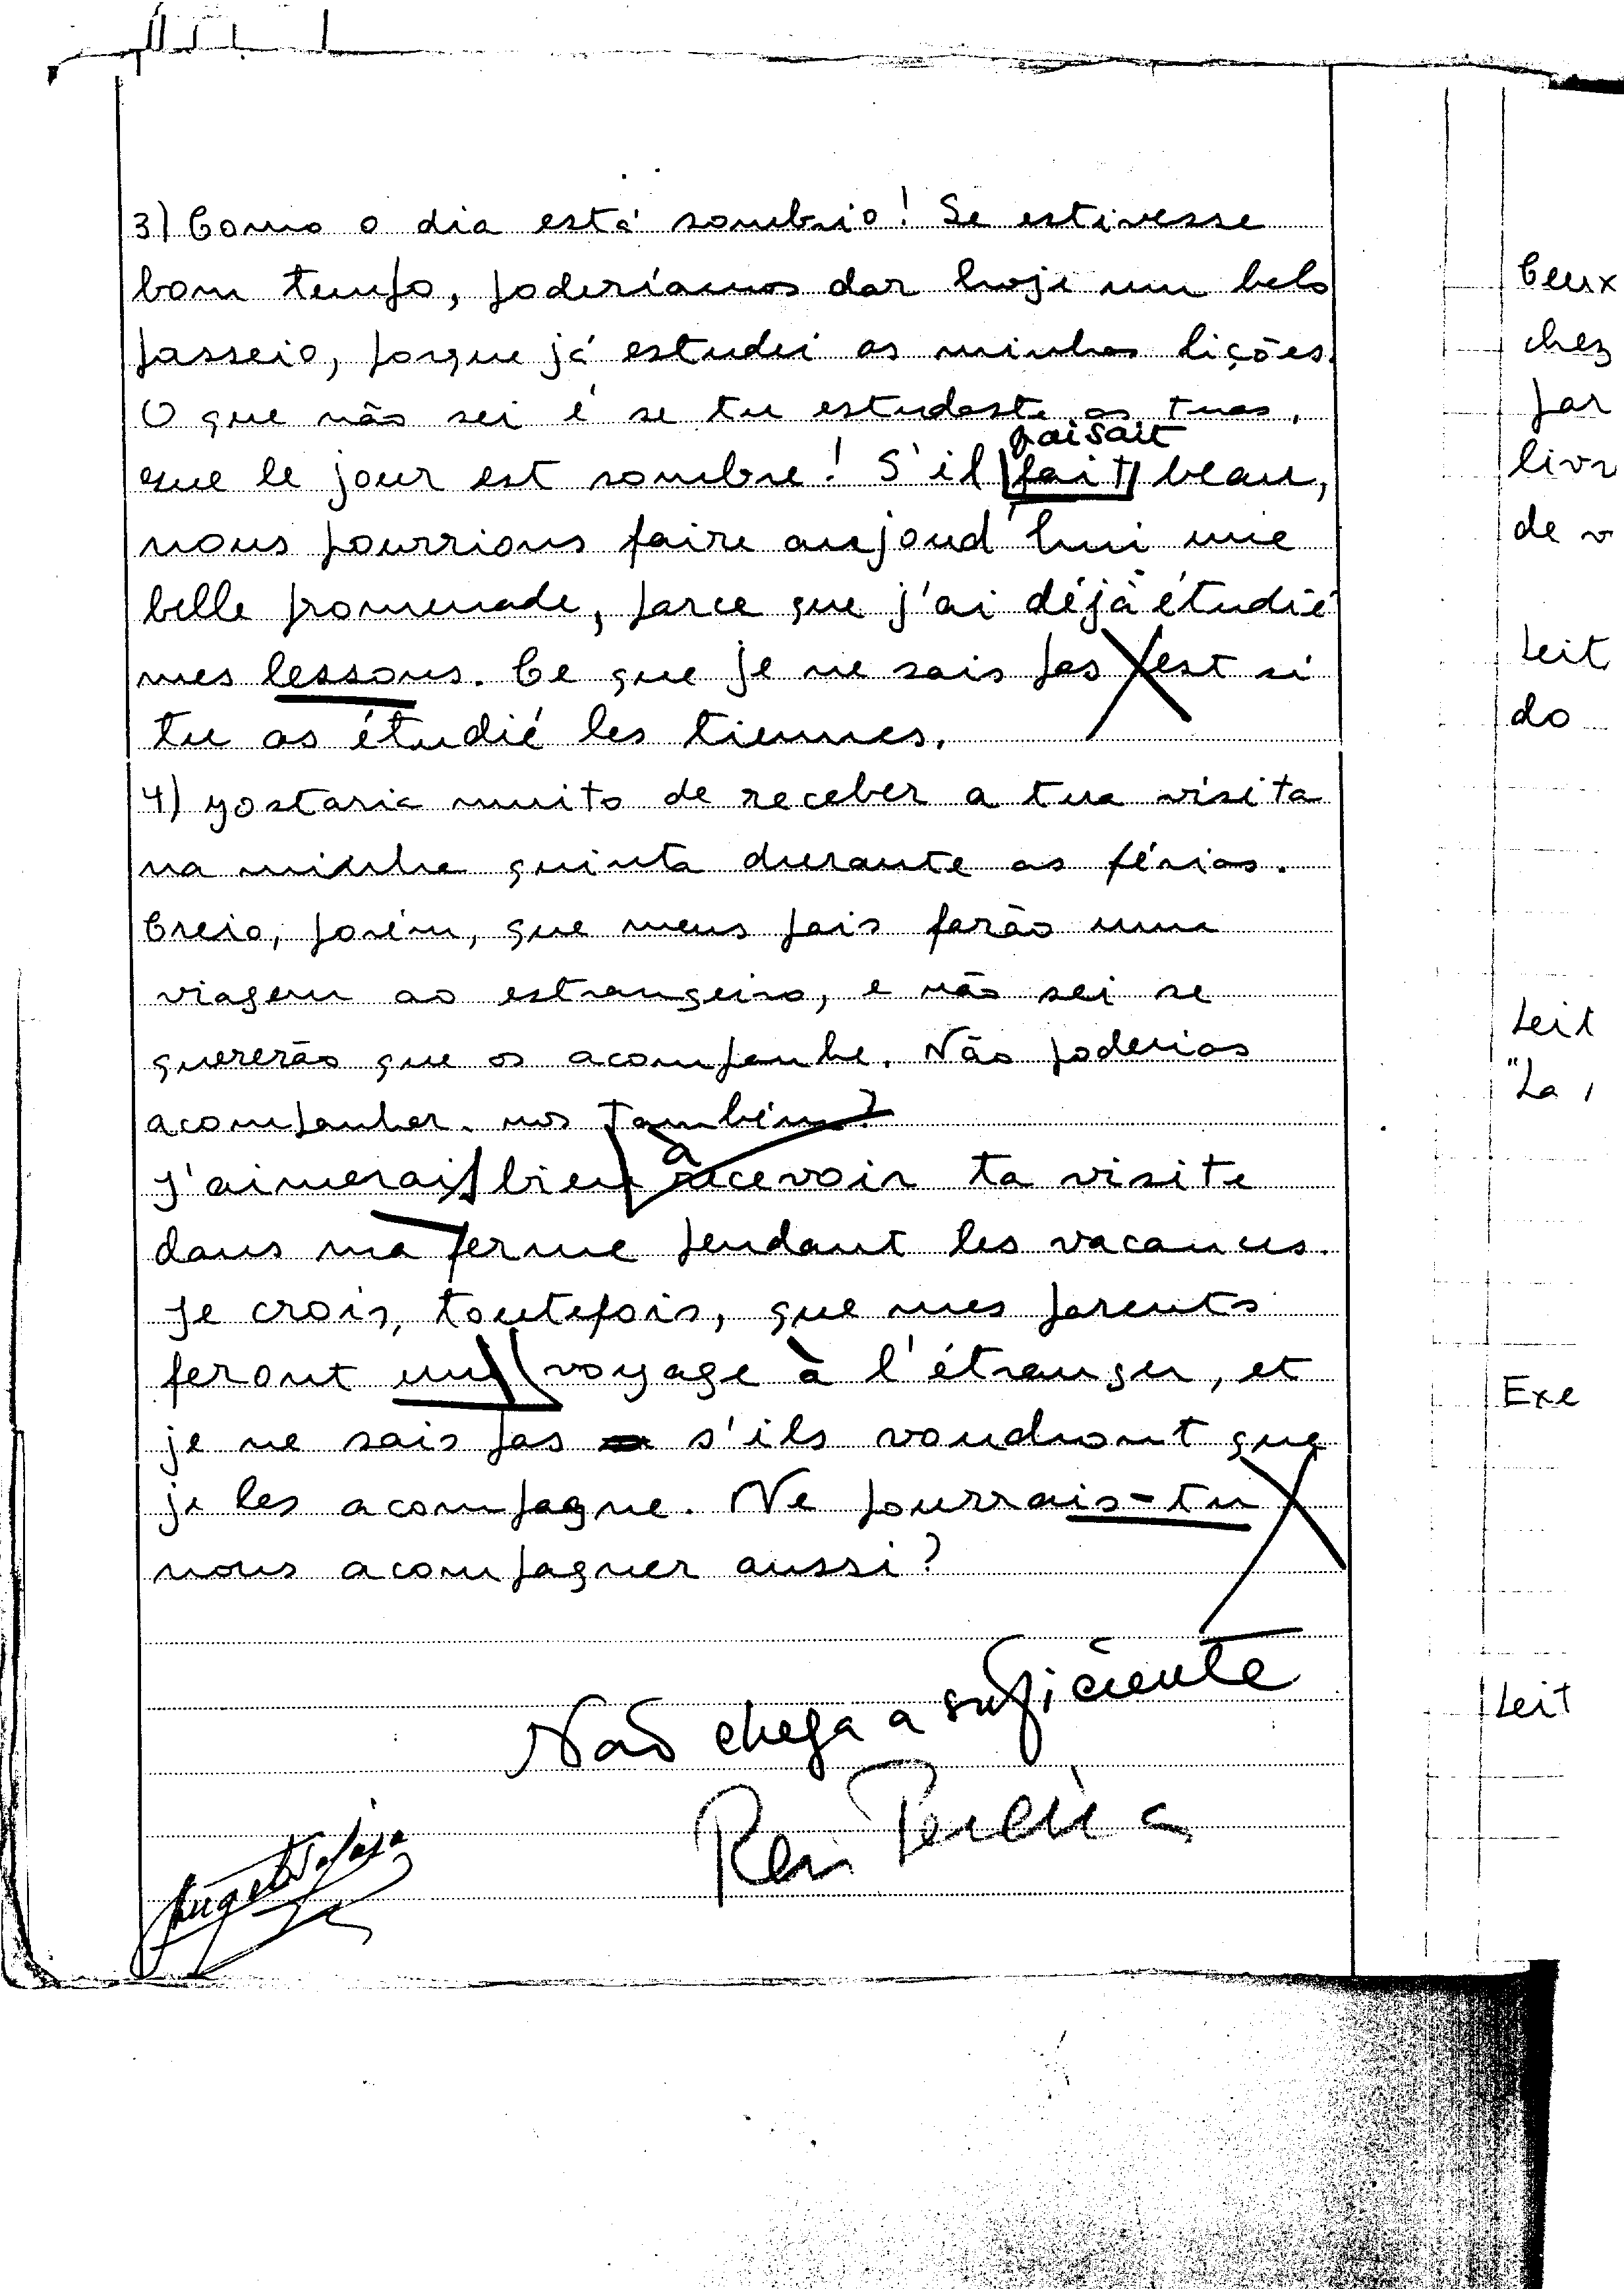 3) Como o dia está sombrio! Se estivesse
bom tempo, poderíamos dar hoje um belo
passeio, porque já estudei as minhas lições.
O que não sei é se tu estudaste as tuas.
faisait
que le jour est sombre! S'il fait beau,
nous pourrions faire aujoud'hui une
belle promenade, parce que j'ai déjà étudié
mes lessons. Ce que je ne sais pas est si
tu as étudié les tiennes.
4) Gostaria muito de receber a tua visita
na minha quinta durante as férias.
Creio, porém, que meus pais farão uma
viagem ao estrangeiro, e não sei se
quererão que os acompanhe. Não poderias
acompanhar-nos também?
à
J'aimerais bien recevoir ta visite
dans ma ferme pendant les vacances.
Je crois, toutefois, que mes parents
feront une voyage à l'étranger, et
je ne sais pas s'ils voudront que
je les acompagne. Ne pourrais-tu
nous acompagner aussi?
Não chega a suficiente
Rui Pereira
Ceux
chez
par
livr
de v
Leit
do
Leit
"La
Exe
Leit